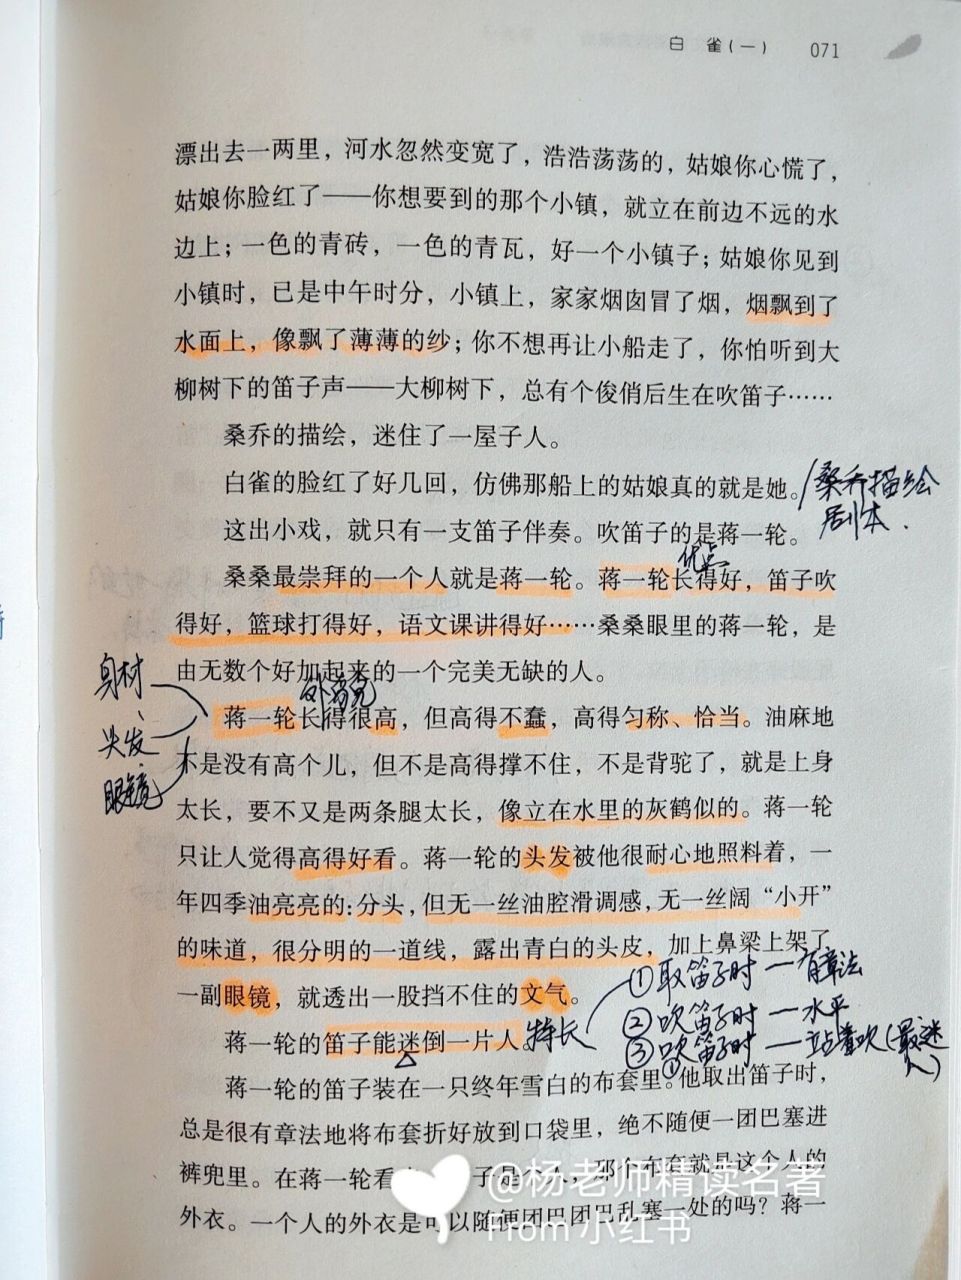 白 雀(一) 071
漂出去一两里，河水忽然变宽了，浩浩荡荡的，姑娘你心慌了，
姑娘你脸红了——你想要到的那个小镇，就立在前边不远的水
边上；一色的青砖，一色的青瓦，好一个小镇子；姑娘你见到
小镇时，已是中午时分，小镇上，家家烟囱冒了烟，烟飘到了
水面上，像飘了薄薄的纱；你不想再让小船走了，你怕听到大
柳树下的笛子声——大柳树下，总有个俊俏后生在吹笛子……
桑乔的描绘，迷住了一屋子人。
白雀的脸红了好几回，仿佛那船上的姑娘真的就是她。
桑乔描绘
剧本.
这出小戏，就只有一支笛子伴奏。吹笛子的是蒋一轮。
优点
桑桑最崇拜的一个人就是蒋一轮。蒋一轮长得好，笛子吹
得好，篮球打得好，语文课讲得好……桑桑眼里的蒋一轮，是
由无数个好加起来的一个完美无缺的人。
身材、
头发、
眼镜
蒋一轮长得很高，但高得不蠢，高得匀称、恰当。油麻地
不是没有高个儿，但不是高得撑不住，不是背驼了，就是上身
太长，要不又是两条腿太长，像立在水里的灰鹤似的。蒋一轮
只让人觉得高得好看。蒋一轮的头发被他很耐心地照料着，一
年四季油亮亮的:分头，但无一丝油腔滑调感，无一丝阔“小开”
的味道，很分明的一道线，露出青白的头皮，加上鼻梁上架了
一副眼镜，就透出一股挡不住的文气。
蒋一轮的笛子能迷倒一片人。
特长
①取笛子时—有章法
②吹笛子时—水平
③吹笛子时—站着吹(最迷人)
蒋一轮的笛子装在一只终年雪白的布套里。他取出笛子时，
总是很有章法地将布套折好放到口袋里，绝不随便一团巴塞进
裤兜里。在蒋一轮看 子是 人，那个布套就是这个人的
外衣。一个人的外衣是可以随便团巴团巴乱塞一处的吗？蒋一
@杨老师精读名著
From 小红书